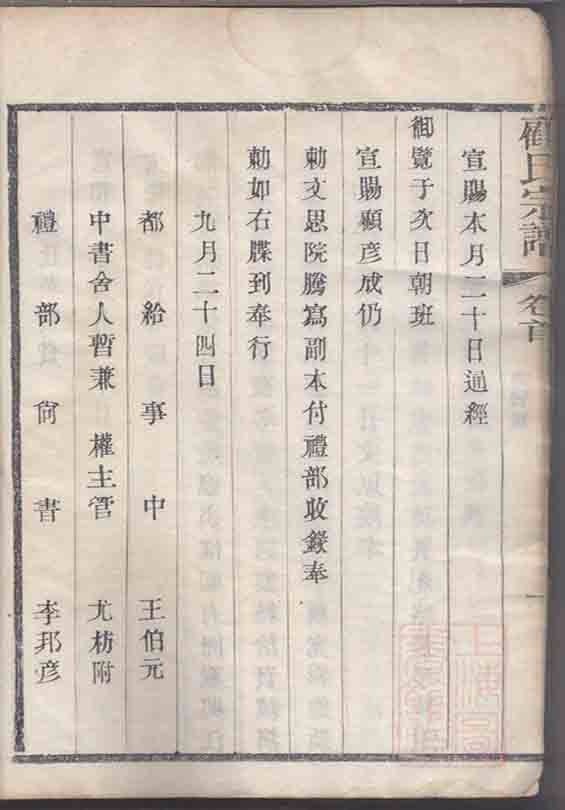 顧氏宗譜 卷首
宣賜本月二十日通經
御覽于次日朝班
宣賜顧彥成仍
勅文思院騰寫副本付禮部收錄奉
勅如右牒到奉行
九月二十四日
都給事中 王伯元
中書舍人暫兼 權主管 尤枋附
禮部尙書 李邦彥